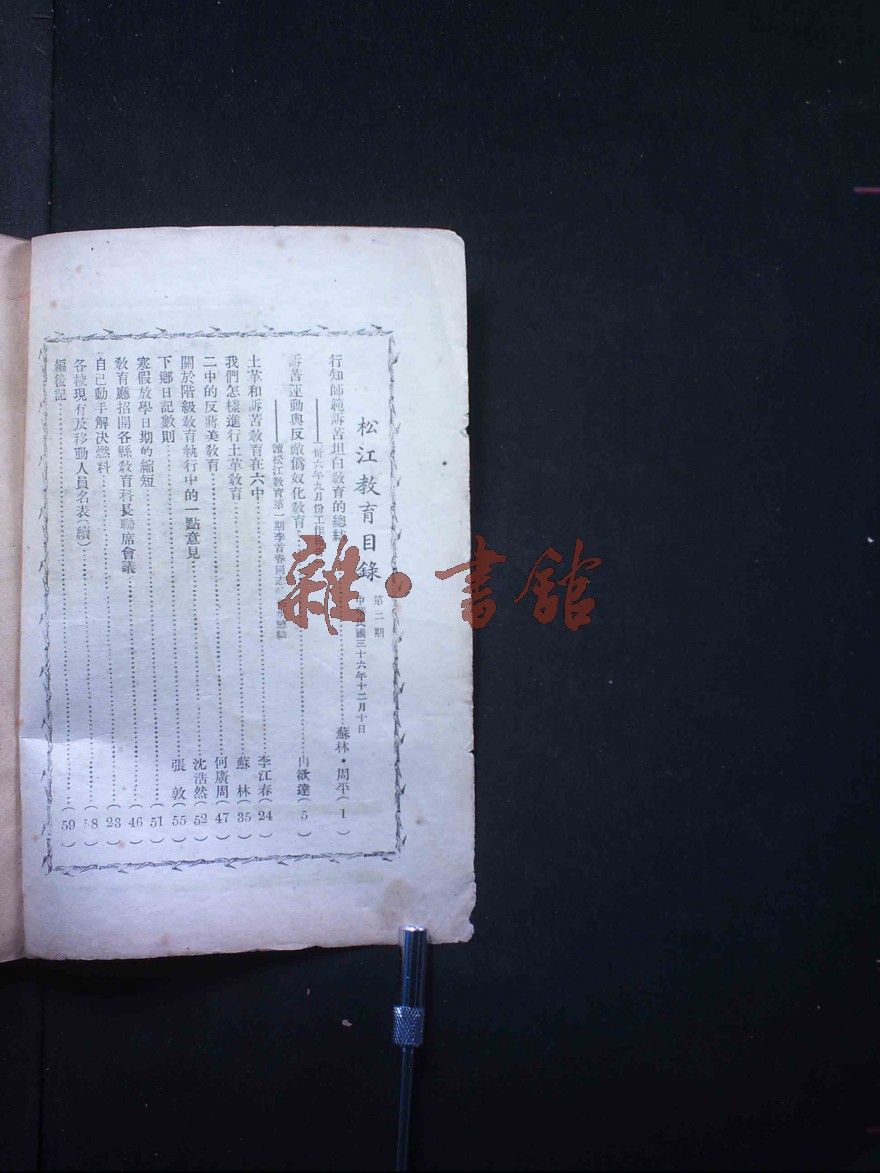 松江教育目錄
第二期
中華民國三十六年十二月十日
行知師範訴苦坦白教育的總結……蘇林・周平(1)
——卅六年九月份工作
訴苦運動與反敵僞奴化教育……冉欲達(5)
——讀松江教育第一期李首春同志
土革和訴苦教育在六中……李江春(24)
我們怎樣進行土革教育……蘇林(35)
二中的反蔣美教育……何廣周(47)
關於階級教育執行中的一點意見……沈浩然(52)
下鄉日記數則……張敦(55)
寒假放學日期的縮短……(51)
教育廳招開各縣教育科長聯席會議……(46)
自己動手解决燃料……(23)
各校現有及移動人員名表(續)……(58)
編後記……(59)
雜・書館